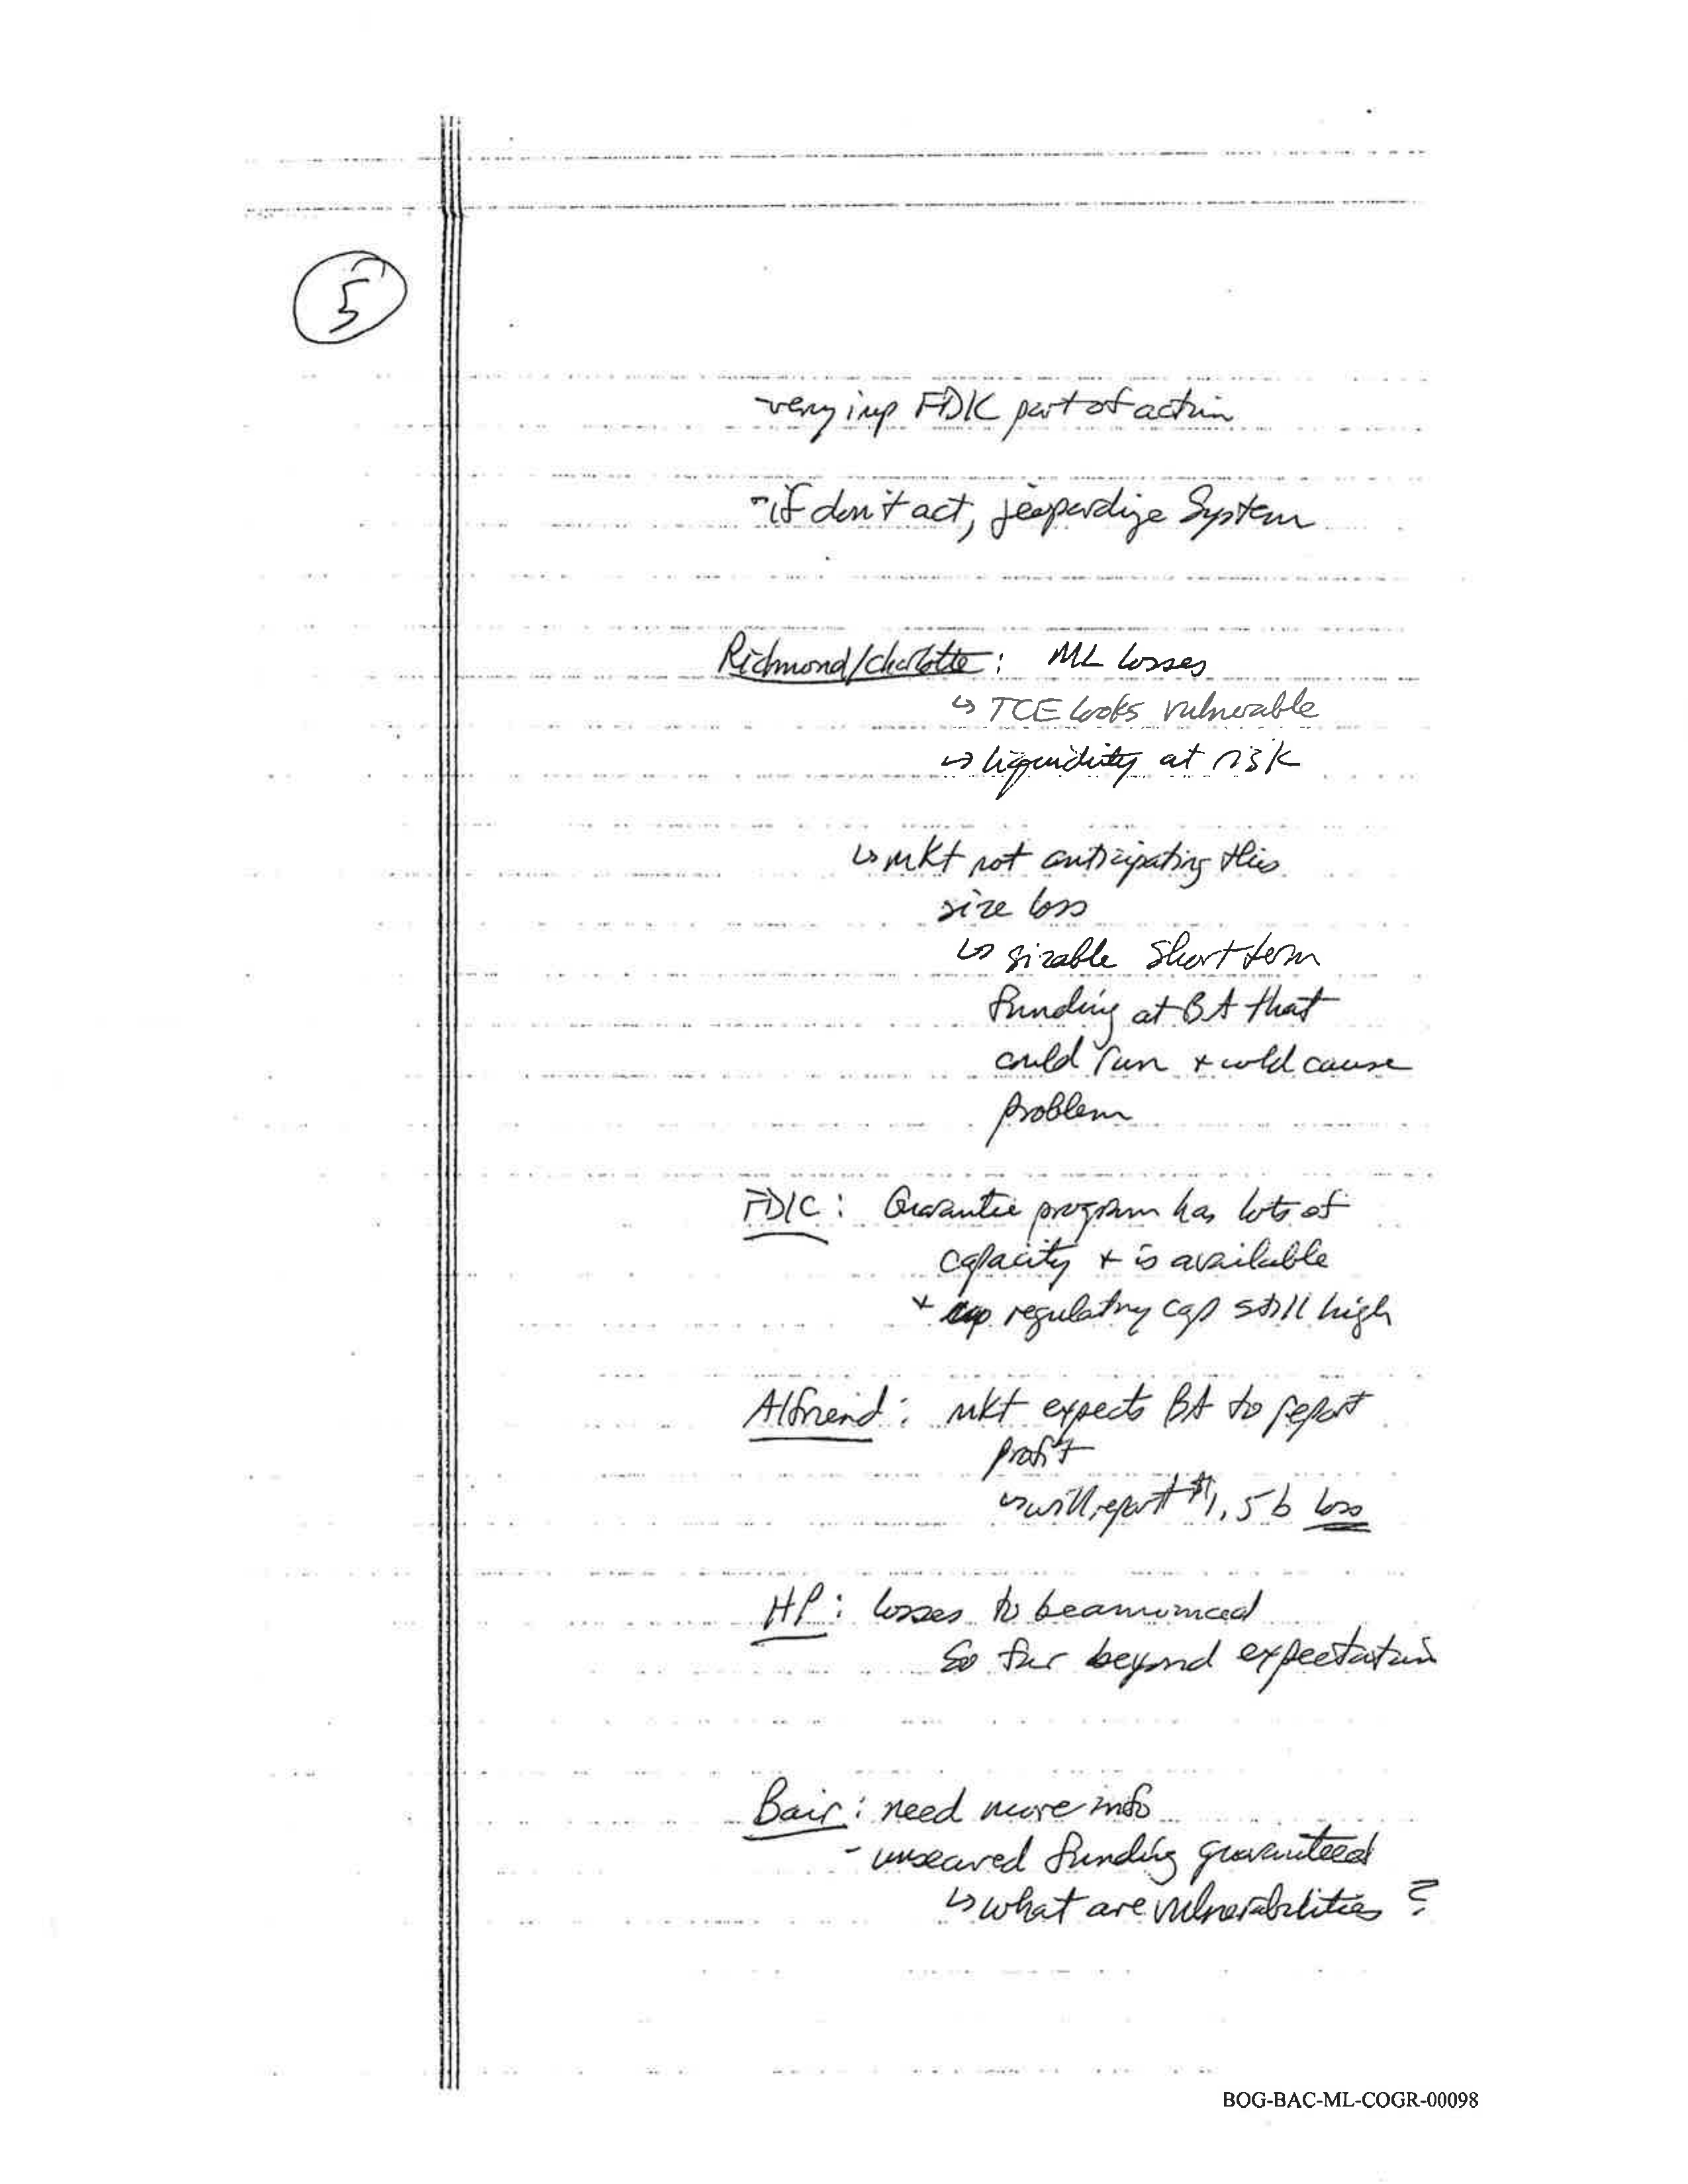 5
- very imp FDIC part of action
- if don't act, jeopardize System
Richmond/Charlotte: ML losses
↳ TCE looks vulnerable
↳ liquidity at risk
↳ mkt not anticipating this
size loss
↳ sizable short term
funding at BA that
could run + cold cause
problem
FDIC: Guarantie program has lots of
capacity + is available
+ regulatory cap still high
Alfriend: mkt expects BA to report
profit
↳ will report $1.5b loss
HP: losses to be announced
so far beyond expectation
Bair: need more info
- unsecured funding guaranteed
↳ what are vulnerabilities?
BOG-BAC-ML-COGR-00098